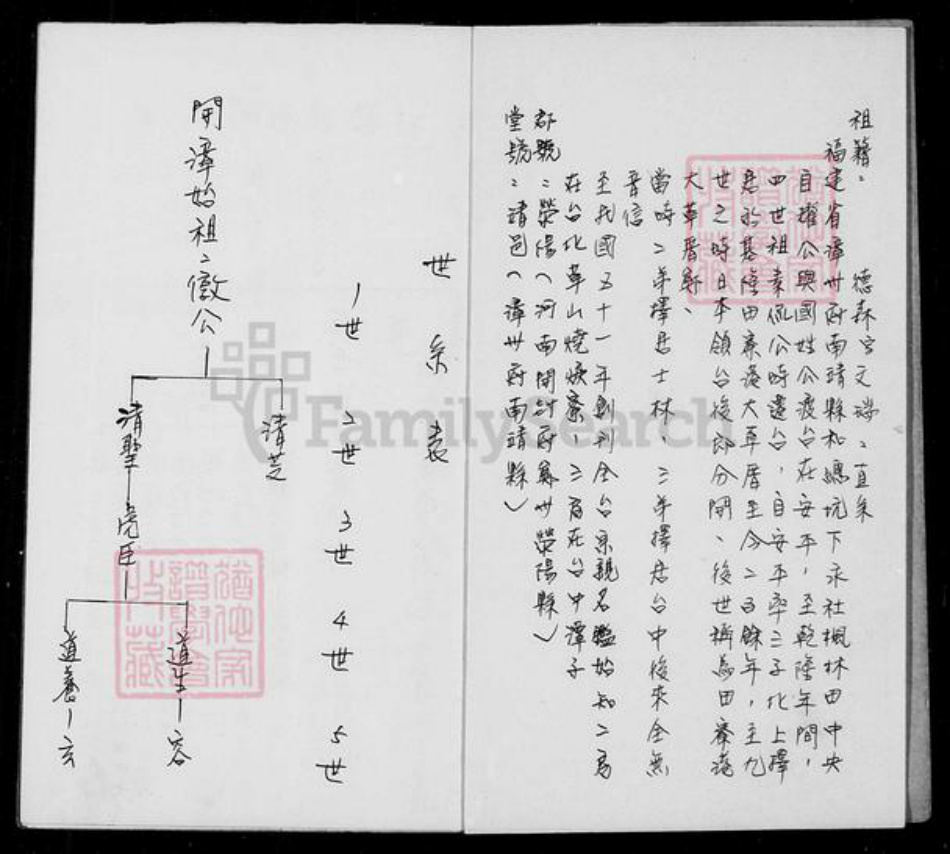 祖籍: 德森字文瑞: 直系
福建省漳州府南靖縣和溪坑下永社楓林田中央
自權公與國姓公渡台在安平,至乾隆年間,
四世祖素侃公時遷台,自安平率三子北上擇
居於基隆田寮港大草厝至今二百餘年,至九
世之時日本領台後即分開、後世稱為田寮港
大草厝、
當時二弟擇居士林、三弟擇居台中後來全無
音信
至民國五十一年創刊全台宗親名鑑始知二房
在台北草山燒焿寮,三房在台中潭子
郡號:滎陽(河南開封府鄭州滎陽縣)
堂號:靖邑(漳州府南靖縣)
世系表
1世 2世 3世 4世 5世
開漳始祖:儆公
清芝
清聖 虎臣
道生 容
道養 玄
FamilySearch